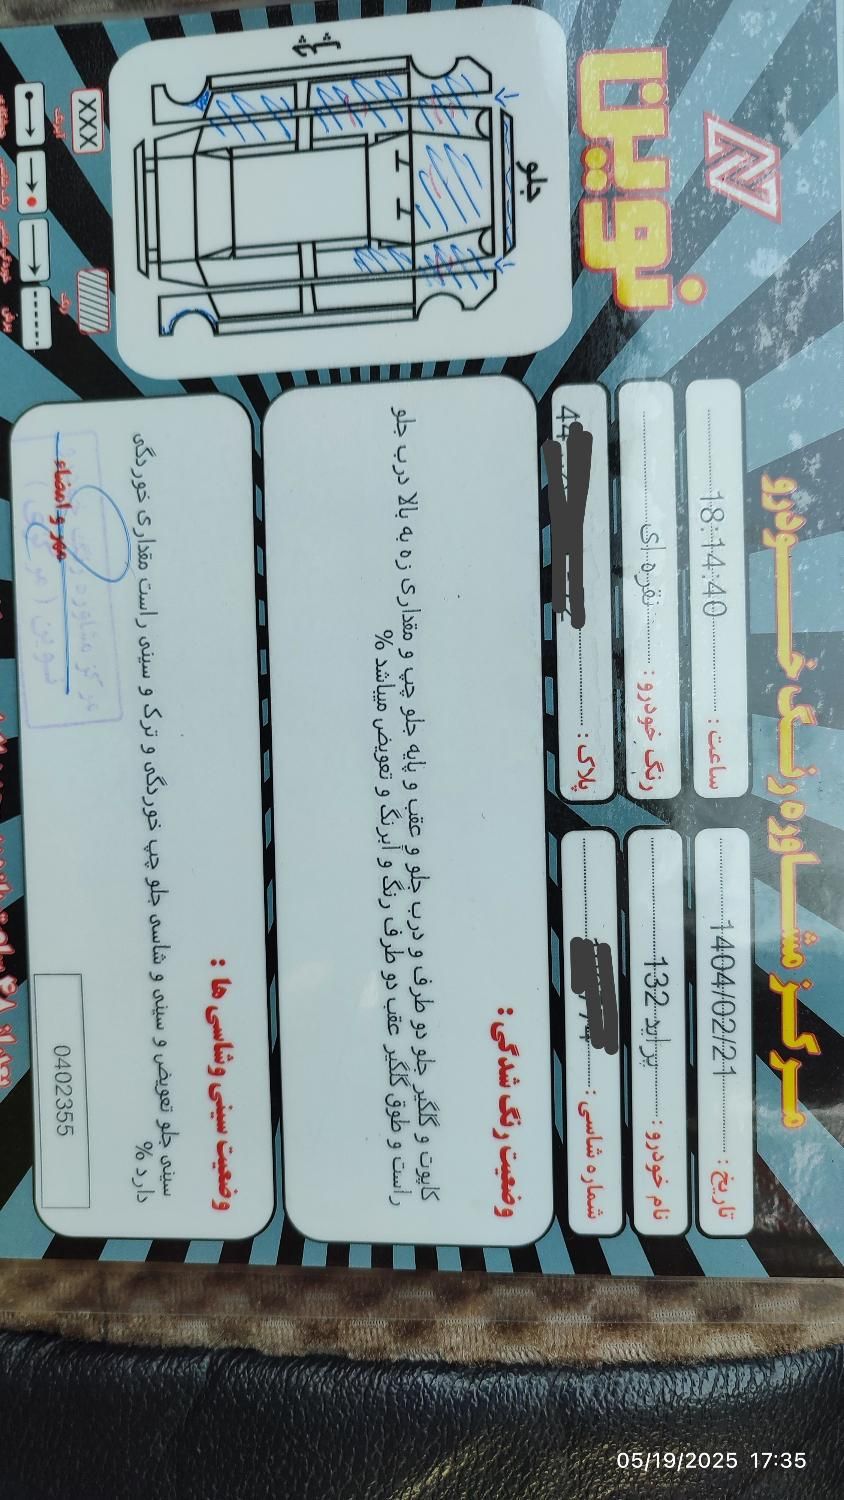 نوین
مرکز مشاوره رنگ خودرو
تاریخ : 1404/02/21
ساعت : 18:14:40
نام خودرو : پراید 132
رنگ خودرو : نقره ای
شماره شاسی :
پلاک : 44
جلو
وضعیت رنگ شدگی :
کاپوت و گلگیر جلو دو طرف و درب جلو و عقب و پایه جلو چپ و مقداری زه به بالا درب جلو
راست و طوق گلگیر عقب دو طرف رنگ و آبرنگ و تعویض میباشد %
xxx
آبرنگ
رنگ
برش
وضعیت سینی و شاسی ها :
سینی جلو تعویض و سینی و شاسی جلو چپ خوردگی و ترک و سینی راست مقداری خوردگی
دارد %
مهر و امضاء
مرکز مشاوره رنگ
نوین
0402355
05/19/2025 17:35